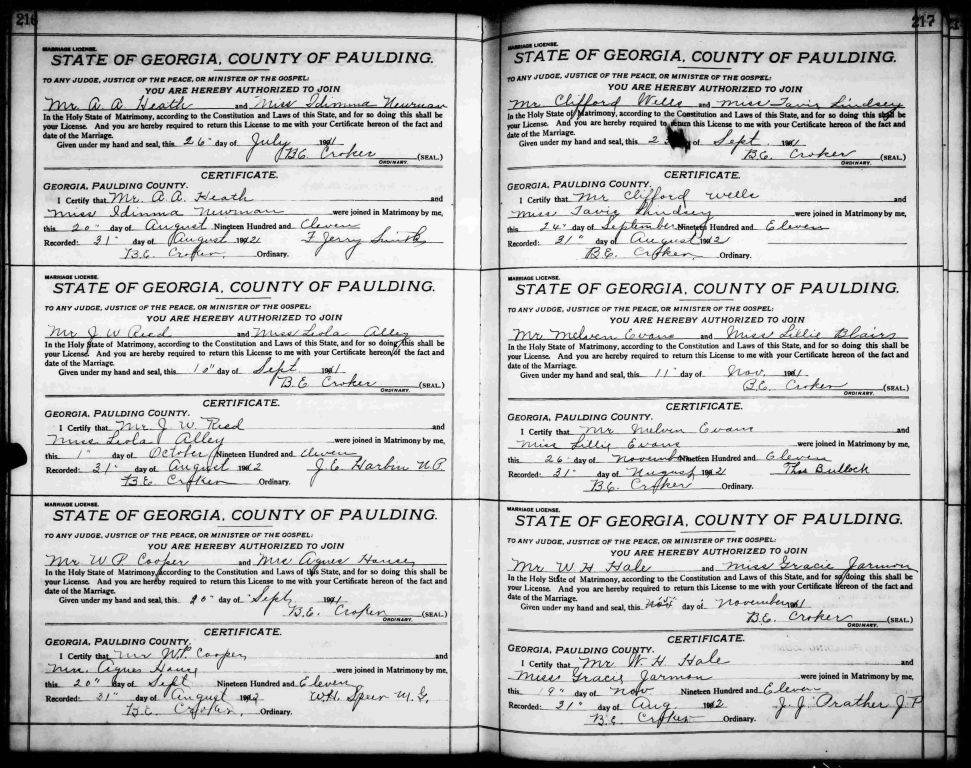 216
MARRIAGE LICENSE.
STATE OF GEORGIA, COUNTY OF PAULDING.
TO ANY JUDGE, JUSTICE OF THE PEACE, OR MINISTER OF THE GOSPEL:
YOU ARE HEREBY AUTHORIZED TO JOIN
Mr. A. A. Heath and Miss Idimma Newman
In the Holy State of Matrimony, according to the Constitution and Laws of this State, and for so doing this shall be
your License. And you are hereby required to return this License to me with your Certificate hereon of the fact and
date of the Marriage.
Given under my hand and seal, this 26" day of July 1911
B.E. Croker (SEAL.)
ORDINARY.
CERTIFICATE.
GEORGIA, PAULDING COUNTY.
I Certify that Mr. A. A. Heath and
Miss Idimma Newman were joined in Matrimony by me,
this 20" day of August Nineteen Hundred and Eleven
Recorded: 31" day of August 1912 F Jerry Smith
B.E. Croker, Ordinary.
MARRIAGE LICENSE.
STATE OF GEORGIA, COUNTY OF PAULDING.
TO ANY JUDGE, JUSTICE OF THE PEACE, OR MINISTER OF THE GOSPEL:
YOU ARE HEREBY AUTHORIZED TO JOIN
Mr. J W Reed and Miss Leola Alley
In the Holy State of Matrimony, according to the Constitution and Laws of this State, and for so doing this shall be
your License. And you are hereby required to return this License to me with your Certificate hereon of the fact and
date of the Marriage.
Given under my hand and seal, this 10" day of Sept 1911
B.E. Croker (SEAL.)
ORDINARY.
CERTIFICATE.
GEORGIA, PAULDING COUNTY.
I Certify that Mr. J. W. Reed and
Miss Leola Alley were joined in Matrimony by me,
this 1" day of October Nineteen Hundred and eleven
Recorded: 31" day of August 1912 J.C. Harbin N.P.
B.E. Croker Ordinary.
MARRIAGE LICENSE.
STATE OF GEORGIA, COUNTY OF PAULDING.
TO ANY JUDGE, JUSTICE OF THE PEACE, OR MINISTER OF THE GOSPEL:
YOU ARE HEREBY AUTHORIZED TO JOIN
Mr W.P. Cooper and Mrs Agnes House
In the Holy State of Matrimony, according to the Constitution and Laws of this State, and for so doing this shall be
your License. And you are hereby required to return this License to me with your Certificate hereon of the fact and
date of the Marriage.
Given under my hand and seal, this 20" day of Sept 1911
B.E. Croker (SEAL.)
ORDINARY.
CERTIFICATE.
GEORGIA, PAULDING COUNTY.
I Certify that Mr W.P. Cooper and
Mrs. Agnes House were joined in Matrimony by me,
this 20" day of Sept Nineteen Hundred and Eleven
Recorded: 31" day of August 1912 W.H. Speer M.G.
B.E. Croker, Ordinary.
217
MARRIAGE LICENSE.
STATE OF GEORGIA, COUNTY OF PAULDING.
TO ANY JUDGE, JUSTICE OF THE PEACE, OR MINISTER OF THE GOSPEL:
YOU ARE HEREBY AUTHORIZED TO JOIN
Mr Clifford Wells and Miss Tavis Lindsey
In the Holy State of Matrimony, according to the Constitution and Laws of this State, and for so doing this shall be
your License. And you are hereby required to return this License to me with your Certificate hereon of the fact and
date of the Marriage.
Given under my hand and seal, this day of Sept 1911
B.E. Croker (SEAL.)
ORDINARY.
CERTIFICATE.
GEORGIA, PAULDING COUNTY.
I Certify that Mr Clifford Wells and
Miss Tavis Lindsey were joined in Matrimony by me,
this 24" day of September Nineteen Hundred and Eleven
Recorded: 31" day of August 1912
B.E. Croker Ordinary.
MARRIAGE LICENSE.
STATE OF GEORGIA, COUNTY OF PAULDING.
TO ANY JUDGE, JUSTICE OF THE PEACE, OR MINISTER OF THE GOSPEL:
YOU ARE HEREBY AUTHORIZED TO JOIN
Mr Melven Evans and Miss Lillie Blairs
In the Holy State of Matrimony, according to the Constitution and Laws of this State, and for so doing this shall be
your License. And you are hereby required to return this License to me with your Certificate hereon of the fact and
date of the Marriage.
Given under my hand and seal, this 11" day of Nov. 1911
B.E. Croker (SEAL.)
ORDINARY.
CERTIFICATE.
GEORGIA, PAULDING COUNTY.
I Certify that Mr. Melven Evans and
Miss Lillie Evans were joined in Matrimony by me,
this 26" day of November Nineteen Hundred and Eleven
Recorded: 31" day of August 1912 Thos Bullock
B.E. Croker Ordinary.
MARRIAGE LICENSE.
STATE OF GEORGIA, COUNTY OF PAULDING.
TO ANY JUDGE, JUSTICE OF THE PEACE, OR MINISTER OF THE GOSPEL:
YOU ARE HEREBY AUTHORIZED TO JOIN
Mr. W H Hale and Miss Gracie Jarmon
In the Holy State of Matrimony, according to the Constitution and Laws of this State, and for so doing this shall be
your License. And you are hereby required to return this License to me with your Certificate hereon of the fact and
date of the Marriage.
Given under my hand and seal, this day of November 1911
B.E. Croker (SEAL.)
ORDINARY.
CERTIFICATE.
GEORGIA, PAULDING COUNTY.
I Certify that Mr W. H. Hale and
Miss Gracie Jarmon were joined in Matrimony by me,
this 19" day of Nov Nineteen Hundred and Eleven
Recorded: 31" day of Aug. 1912 J. J. Prather J.P.
B.E. Croker Ordinary.